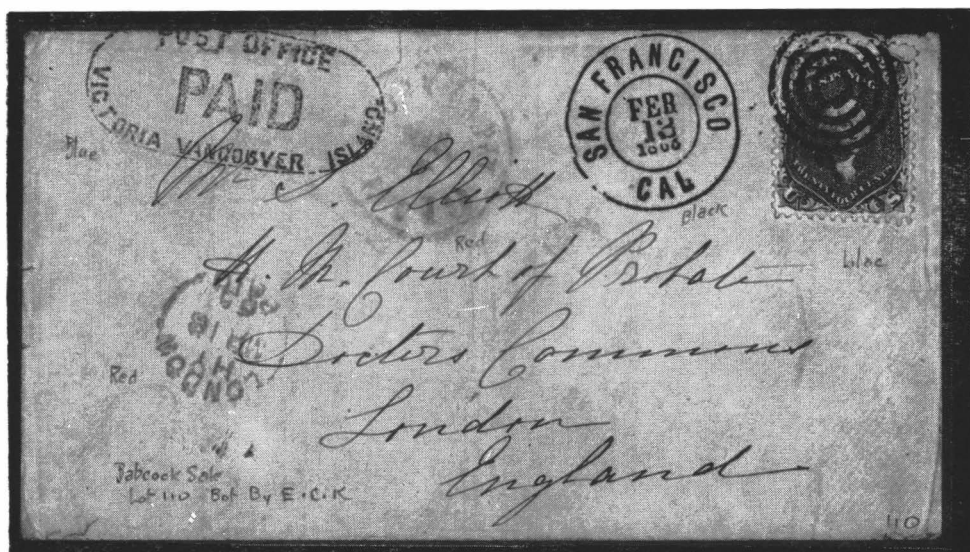 POST OFFICE
PAID
VICTORIA VANCOUVER ISLAND
Blue
SAN FRANCISCO
FEB
CAL
Black
Lilac
Red
S. Elliott
H. M. Court of Probate
Doctors Commons
London
England
LONDON
PAID
Red
Babcock Sale
Lot 110 Bot By E.C.K
110